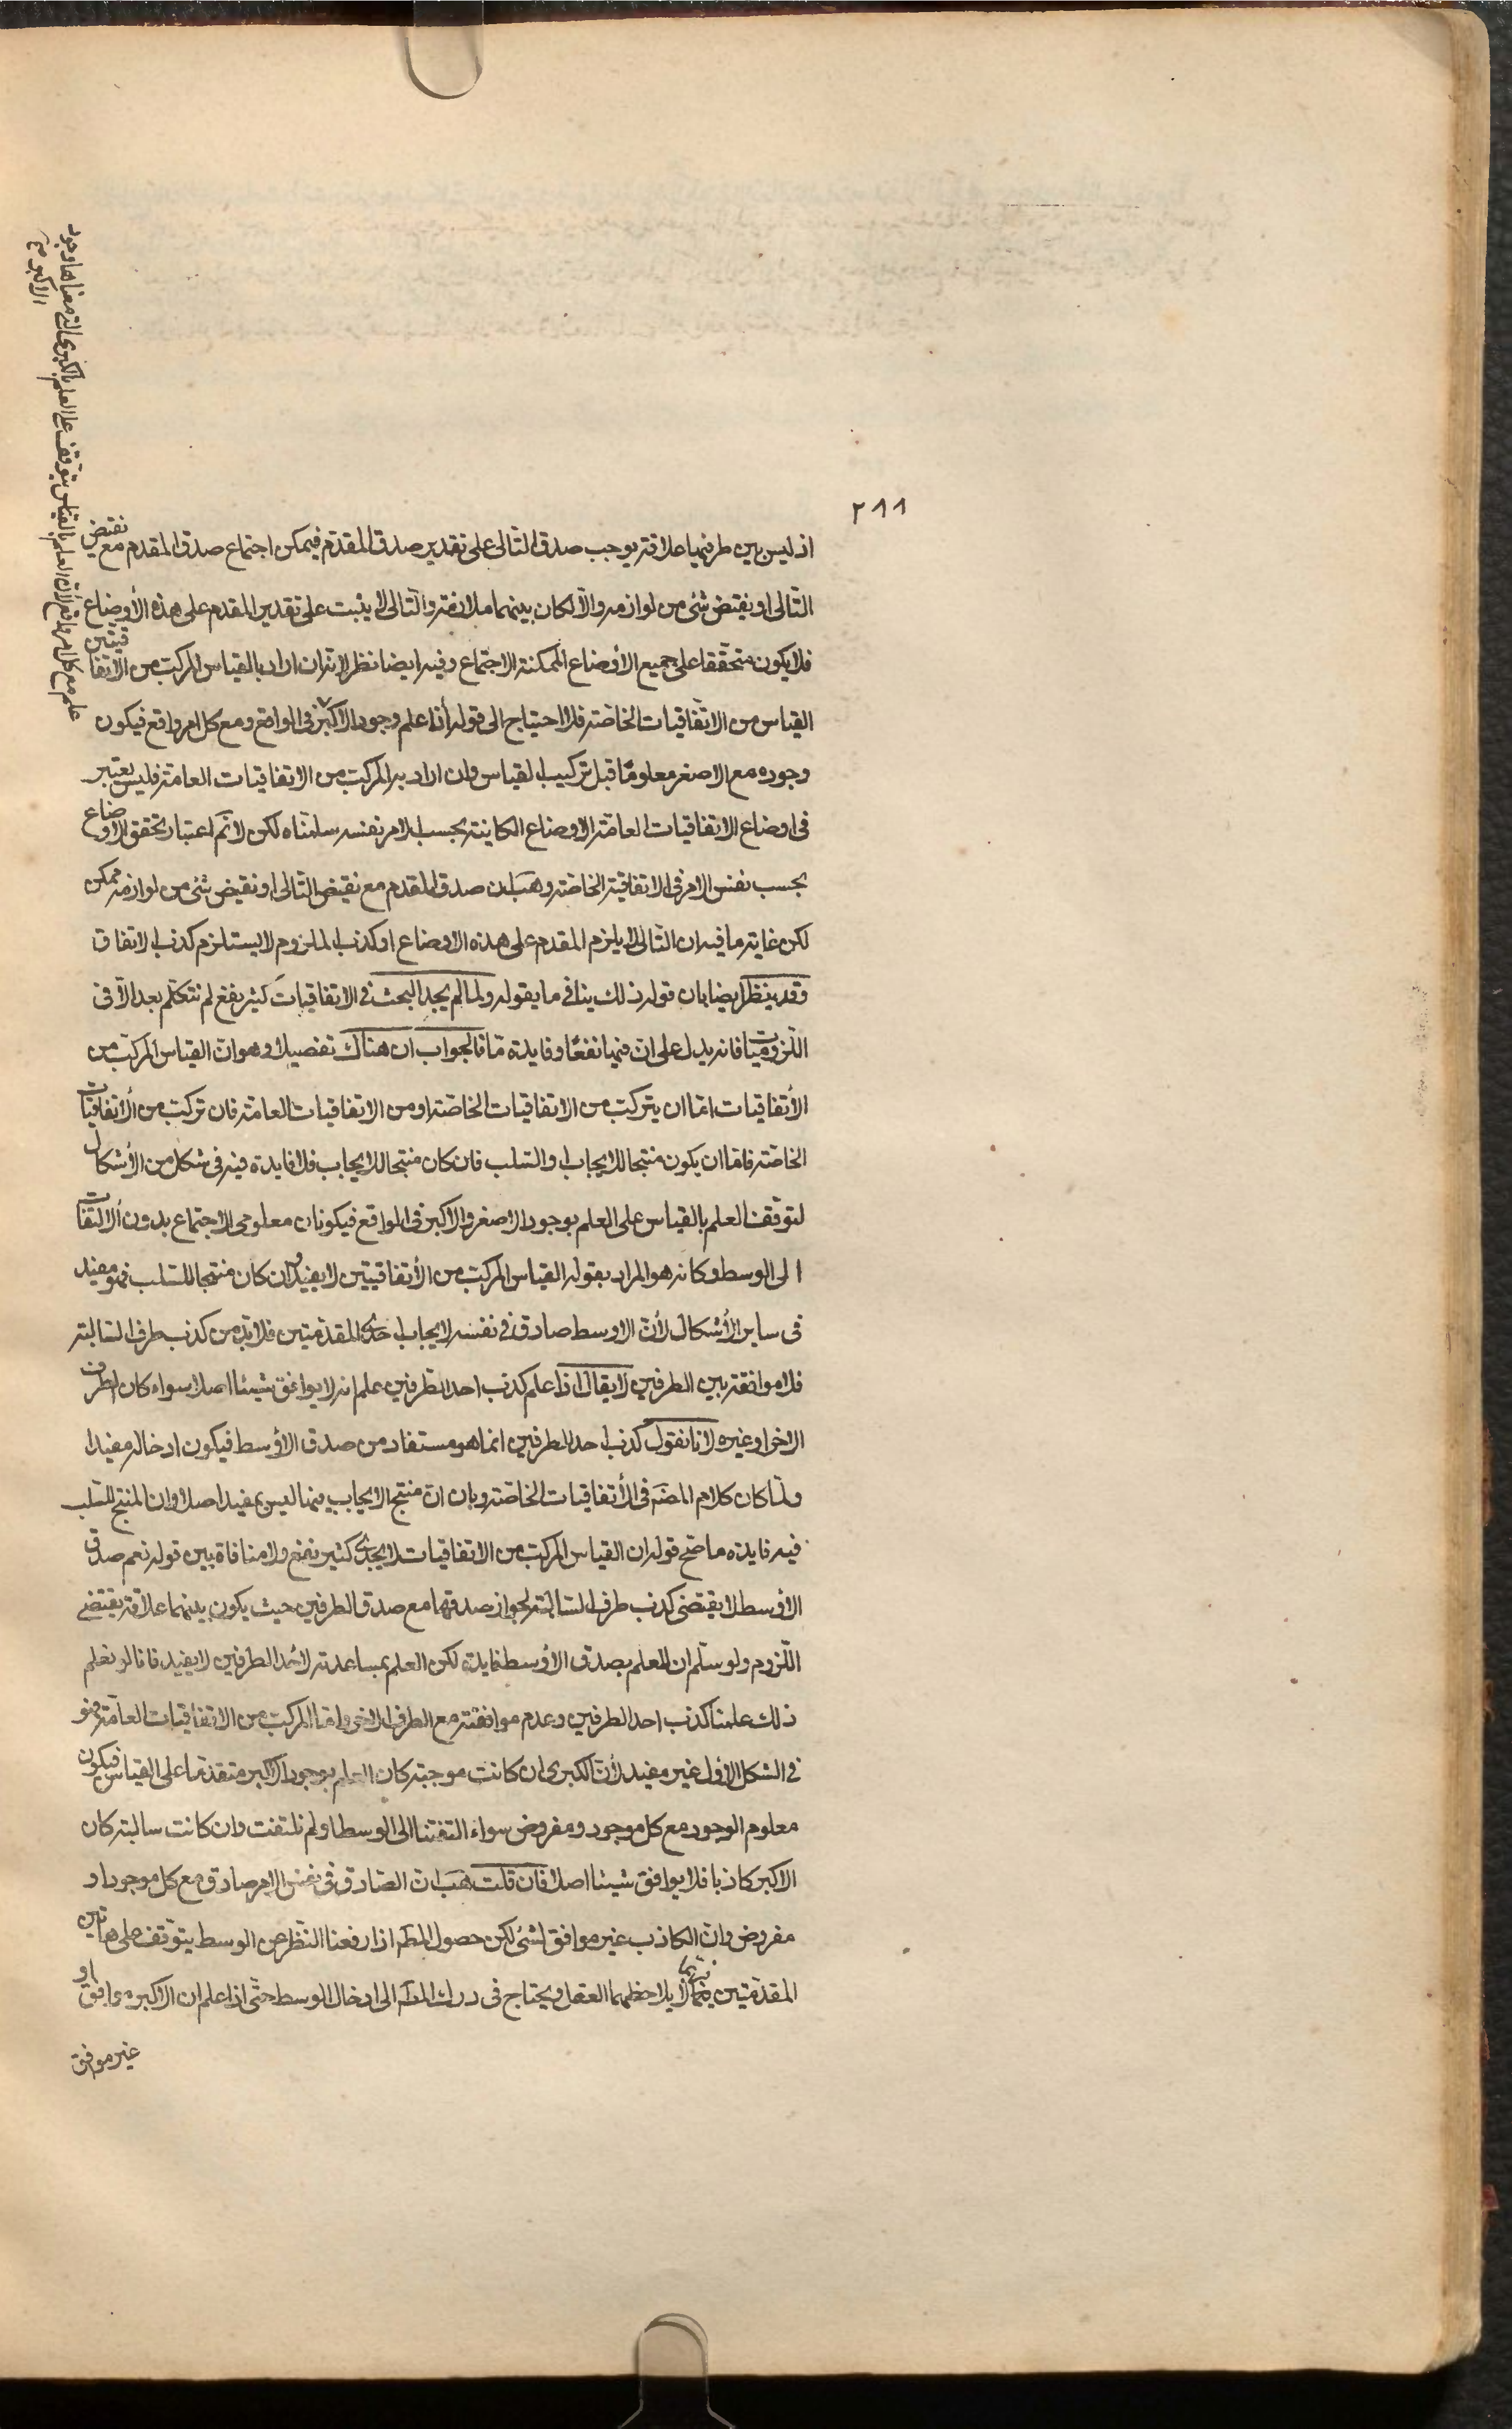 ٢١١
اذ ليس بين طرفيها علاقة يوجب صدق التالى على تقدير صدق المقدم فيمكن اجتماع صدق المقدم مع نقيض
التالى او نقيض شئ من لوازمه والا لكان بينهما ملازمة والتالى لا يثبت على تقدير المقدم على هذه الأوضاع
فلا يكون متحققا على جميع الاوضاع الممكنة الاجتماع وفيه ايضا نظر لانه ان اراد بالقياس المركب من الاتفاقيتين
القياس من الاتفاقيات الخاصة فلا احتياج الى قوله اذا علم وجود الاكبر فى الواقع ومع كل امر واقع فيكون
وجوده مع الاصغر معلومًا قبل تركيب القياس وان اراد به المركب من الاتفاقيات العامة فليس يعتبر
فى اوضاع الاتفاقيات العامة الاوضاع الكاينة بحسب الامر نفسه سلمناه لكن لا نم اعتبار تحقق الاوضاع
بحسب نفس الامر فى الاتفاقية الخاصة وهب ان صدق المقدم مع نقيض التالى او نقيض شئ من لوازمه ممكن
لكن غاية ما فيه ان التالى لا يلزم المقدم على هذه الاوضاع او كذب الملزوم لا يستلزم كذب الاتفاق
وقد ينظر ايضا بان قوله ذلك ينافى ما يقوله ولما لم يجد البحث فى الاتفاقيات كثير نفع لم نتكلم بعد الا فى
اللزوميات فانه يدل على ان فيها نفعًا وفايدة ما فالجواب ان هناك تفصيلا وهو ان القياس المركب من
الأتفاقيات اما ان يتركب من الاتفاقيات الخاصة او من الاتفاقيات العامة فان تركب من الأتفاقيات
الخاصة فاما ان يكون منتجا للايجاب او السلب فان كان منتجا للايجاب فلا فايدة فيه فى شكل من الأشكال
لتوقف العلم بالقياس على العلم بوجود الاصغر والاكبر فى الواقع فيكونان معلومى الاجتماع بدون الالتفات
الى الوسط وكانه هو المراد بقوله القياس المركب من الأتفاقيتين لا يفيد وان كان منتجا للسلب فهو مفيد
فى ساير الأشكال لأن الاوسط صادق فى نفسه لايجاب احدى المقدمتين فلا بد من كذب طرف السالبة
فلا موافقة بين الطرفين لا يقال اذا علم كذب احد الطرفين علم انه لا يوافق شيئا اصلا سواء كان الطرف
الاخر او غيره لانا نقول كذب احد الطرفين انما هو مستفاد من صدق الأوسط فيكون ادخاله مفيدا
ولما كان كلام المصنف فى الأتفاقيات الخاصة وبان ان منتج الايجاب منها ليس بمفيد اصلا وان المنتج للسلب
فيه فايدة ما صح قوله ان القياس المركب من الاتفاقيات لا يجدى كثير نفع ولا منافاة بين قوله نعم صدق
الأوسط لا يقتضى كذب طرف السالبة لجواز صدقهما مع صدق الطرفين حيث يكون بينهما علاقة يقتضى
اللزوم ولو سلم ان للعلم بصدق الأوسط فايدة لكن العلم بمساعدته لأحد الطرفين لا يفيد فانا لو نعلم
ذلك علمنا كذب احد الطرفين وعدم موافقته مع الطرف الاخر واما المركب من الاتفاقيات العامة فهو
فى الشكل الاول غير مفيد لأن الكبرى ان كانت موجبة كان العلم بوجود الاكبر متقدما على القياس فيكون
معلوم الوجود مع كل موجود ومفروض سواء التفتنا الى الوسط او لم نلتفت وان كانت سالبة كان
الاكبر كاذبا فلا يوافق شيئا اصلا فان قلت هب ان الصادق فى نفس الامر صادق مع كل موجود او
مفروض وان الكاذب غير موافق لشئ لكن حصول المط اذا رفعنا النظر عن الوسط يتوقف على هاتين
المقدمتين لا يلاحظهما العقل ويحتاج فى درك المط الى ادخال الوسط حتى اذا علم ان الاكبر موافق او
غير موافق
علم مع كل امر واقع لأن العلم بالقياس يتوقف على العلم بالكبرى التى معناها وجود
الاكبر صح